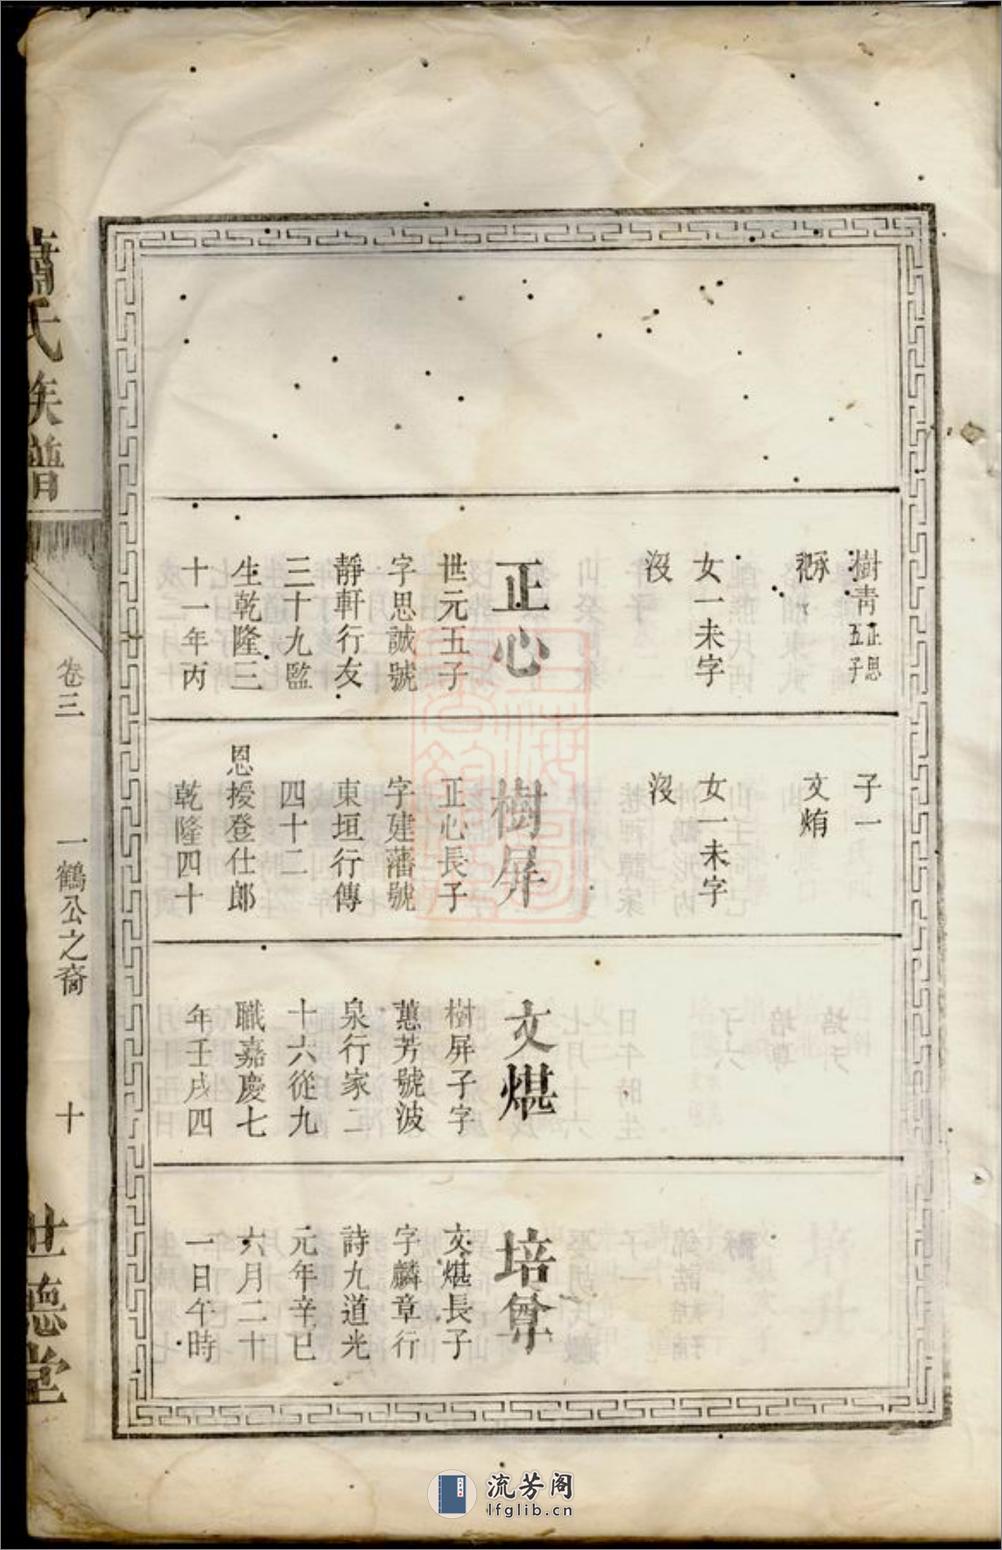 樹青正思五子
承祀
女一未字
沒
正心
世元五子
字思誠號
靜軒行友
三十九監
生乾隆三
十一年丙
子一
文烠
女一未字
沒
樹屏
正心長子
字建藩號
東垣行傳
四十二
恩授登仕郎
乾隆四十
文煁
樹屏子字
蕙芳號波
泉行家二
十六從九
職嘉慶七
年壬戌四
培耷
文煁長子
字麟章行
詩九道光
元年辛巳
六月二十
一日午時
蕭氏族譜
卷三
一鶴公之裔
十
世德堂
流芳阁
lfglib.cn